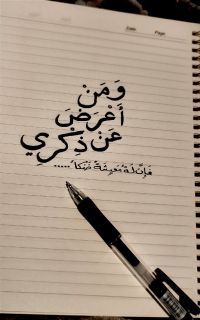 Date Page
وَمَنْ
أَعْرَضَ
عَنْ ذِكْرِي
فَإِنَّ لَهُ مَعِيشَةً ضَنْكاً.....